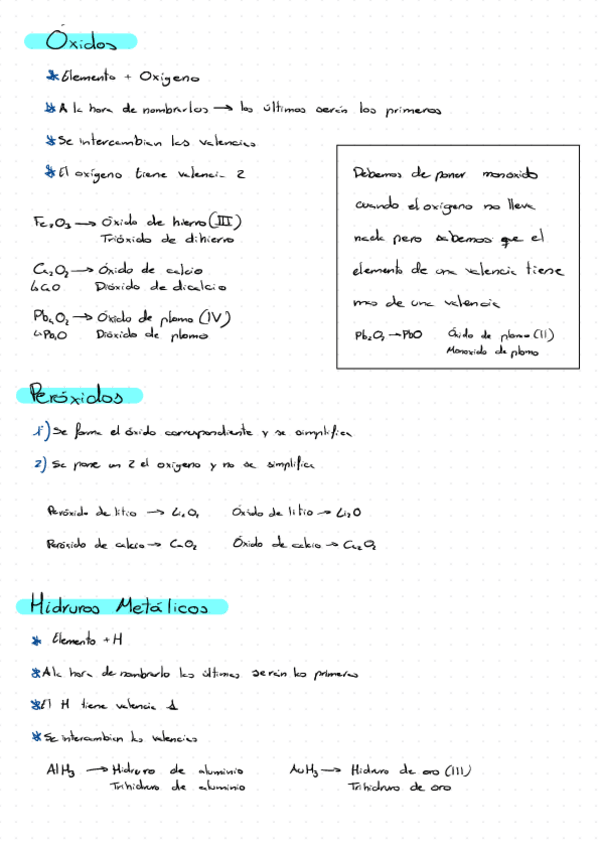 Óxidos
* Elemento + Oxígeno
* A la hora de nombrarlos → los últimos serán los primeros
* Se intercambian las valencias
* El oxígeno tiene valencia 2
Fe₂O₃ → Óxido de hierro (III)
Trióxido de dihierro
Ca₂O₂ → Óxido de calcio
↳ CaO Dióxido de dicalcio
Óxido de plomo (IV)
Dióxido de plomo
Debemos de poner monoxido
cuando el oxígeno no lleve
nada pero sabemos que el
elemento de una valencia tiene
mas de una valencia
Pb₂O₂ → PbO Óxido de plomo (II)
Monoxido de plomo
Peróxidos
1) Se forma el óxido correspondiente y se simplifica
2) Se pone un 2 el oxígeno y no se simplifica
Peróxido de litio → Li₂O₂ Óxido de litio → Li₂O
Peróxido de calcio → CaO₂ Óxido de calcio → Ca₂O₂
Hidruros Metálicos
* Elemento + H
* A la hora de nombrarlo los últimos serán los primeros
* El H tiene valencia 1
* Se intercambian las valencias
AlH₃ → Hidruro de aluminio AuH₃ → Hidruro de oro (III)
Trihidruro de aluminio Trihidruro de oro